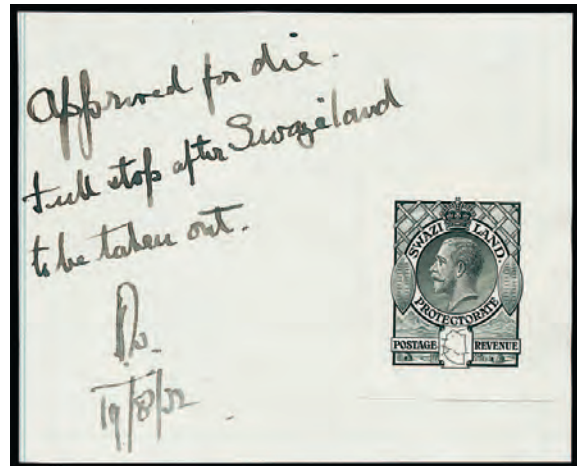 Approved for die.
Full stop after Swaziland
to be taken out.
19/8/32
SWAZI LAND.
PROTECTORATE
POSTAGE REVENUE